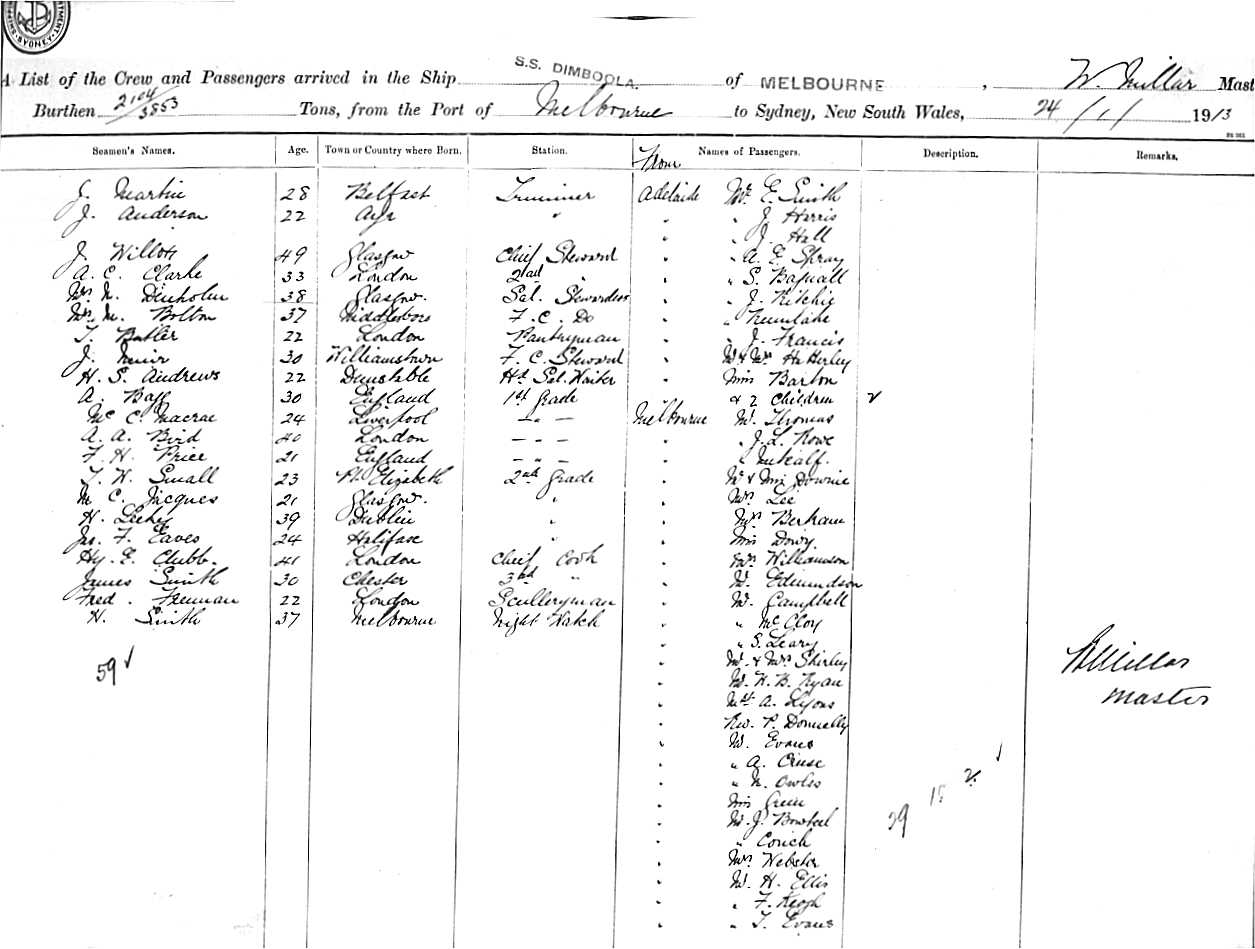 SYDNEY
A List of the Crew and Passengers arrived in the Ship S.S. DIMBOOLA. of MELBOURNE, W. Millar Mast
Burthen 2104/3853 Tons, from the Port of Melbourne to Sydney, New South Wales, 24/1/1913
Seamen's Names. Age. Town or Country where Born. Station. From Names of Passengers. Description. Remarks.
J. Martin 28 Belfast Trimmer Adelaide Mr. E. Smith
J. Anderson 22 Ayr " " " J. Harris
" " J. Hall
J. Willott 49 Glasgow Chief Steward " " A. E. Spray
A. C. Clarke 33 London 2nd " " " S. Bagnall
Mrs. N. Denholm 38 Glasgow. Sal. Stewardess " " J. Ritchie
Mrs. M. Bolton 37 Middlesboro F. C. Do " "
T. Butler 22 London Pantryman " " J. Francis
J. Muir 30 Williamstown F. C. Steward " Mr & Mrs Hatterley
H. S. Andrews 22 Dunstable Hd. Sal. Waiter " Miss Barton
A. Bagg 30 England 1st Grade " & 2 Children v
Mc C. Macrae 24 Liverpool - " - Melbourne Mr. Thomas
A. A. Bird 40 London - " - " " J. L. Rowe
F. H. Price 21 England - " - " " Metcalf.
T. W. Small 23 Pt. Elizabeth 2nd Grade " Mr & Miss Downie
M. C. Jacques 21 Glasgow. " " Mrs Lee
H. Leehy 39 Dublin " " Mrs Bertram
Jas. F. Eaves 24 Halifax " " Miss Dowy
Hy. E. Clubb. 41 London Chief Cook " Mrs Williamson
James Smith 30 Chester 3rd " " Mr. Edmundson
Fred. Freeman 22 London Sculleryman " Mr. Campbell
H. Smith 37 Melbourne Night Watch " " McCloy
" " S. Leary
59 ✓ " Mr. & Mrs Shirley
" Mr. H. B. Ryan
" A. Lyons
" Rev. P. Donnelly
" Mr. Evans
" " A. Cruse
" " N. Owles
" Miss Green
" Mr. J. Bowtell
" " Couch
" Mrs Webster
" Mr. H. Ellis
" " F. Keogh
" " T. Evans
29 15 2 ✓
W Millar
Master